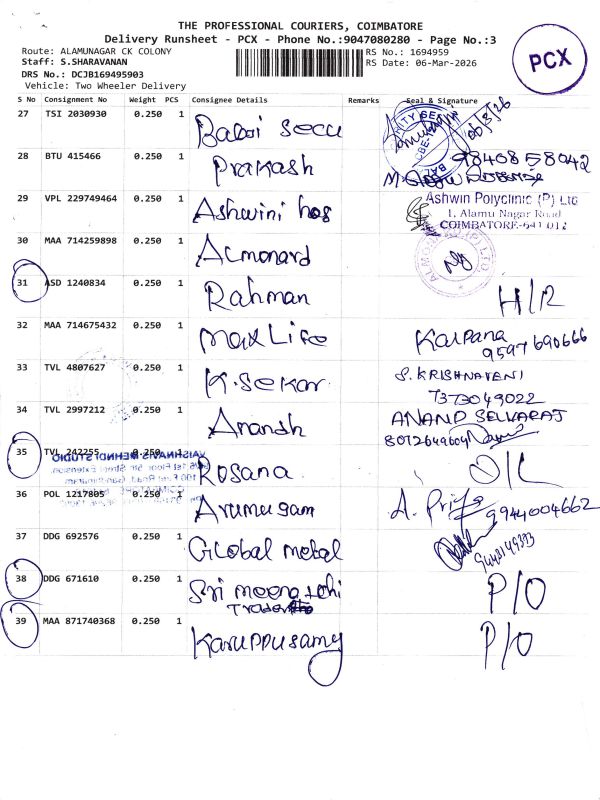 THE PROFESSIONAL COURIERS, COIMBATORE
Delivery Runsheet - PCX - Phone No.:9047080280 - Page No.:3
Route: ALAMUNAGAR CK COLONY
RS No.: 1694959
Staff: S.SHARAVANAN
RS Date: 06-Mar-2026
DRS No.: DCJB169495903
Vehicle: Two Wheeler Delivery
PCX
S No Consignment No Weight PCS Consignee Details Remarks Seal & Signature
27 TSI 2030930 0.250 1 06/3/26
28 BTU 415466 0.250 1 Prakash 98408 58042
29 VPL 229749464 0.250 1 Ashwini hos Ashwin Polyclinic (P) Ltd
1, Alamu Nagar Road
COIMBATORE-641 012
30 MAA 714259898 0.250 1 Almonard
31 ASD 1240834 0.250 1 Rahman H/R
32 MAA 714675432 0.250 1 Max Life Kalpana
9597 690666
33 TVL 4807627 0.250 1 K.Sekar S. KRISHNAVENI
7373049022
34 TVL 2997212 0.250 1 Anandh ANAND SELVARAJ
8072649604
35 TVL 242255 0.250 1 Rosana
VAISHNAVIS MEHNDI STUDIO
36 POL 1217805 0.250 1 Arumugam A. Priya
9944004662
37 DDG 692576 0.250 1 Global metal
38 DDG 671610 0.250 1 Sri meenatchi P/O
39 MAA 871740368 0.250 1 Karuppusamy P/O